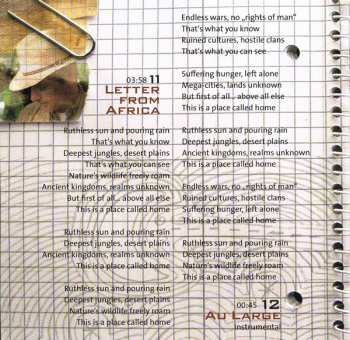 03:58 11
LETTER
FROM
AFRICA
Ruthless sun and pouring rain
That's what you know
Deepest jungles, desert plains
That's what you can see
Nature's wildlife freely roam
Ancient kingdoms, realms unknown
But first of all... above all else
This is a place called home
Ruthless sun and pouring rain
Deepest jungles, desert plains
Ancient kingdoms, realms unknown
This is a place called home
Ruthless sun and pouring rain
Deepest jungles, desert plains
Nature's wildlife freely roam
This is a place called home
Endless wars, no „rights of man”
That's what you know
Ruined cultures, hostile clans
That's what you can see
Suffering hunger, left alone
Mega-cities, lands unknown
But first of all... above all else
This is a place called home
Ruthless sun and pouring rain
Deepest jungles, desert plains
Ancient kingdoms, realms unknown
This is a place called home
Endless wars, no „rights of man”
Ruined cultures, hostile clans
Suffering hunger, left alone
This is a place called home
Ruthless sun and pouring rain
Deepest jungles, desert plains
Nature's wildlife freely roam
This is a place called home
00:45 12
AU LARGE
instrumental